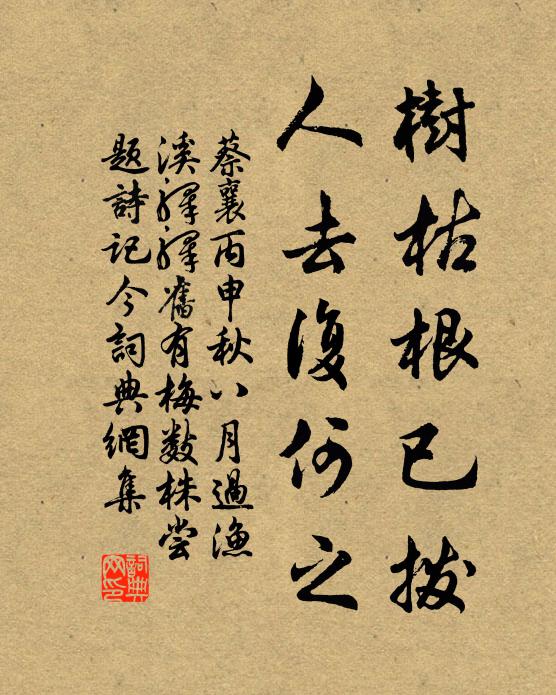 樹枯根已撥
人去復何之
蔡襄丙申秋八月過漁
溪驛驛舊有梅數株嘗
題詩記今詞典網集
詞典
网印